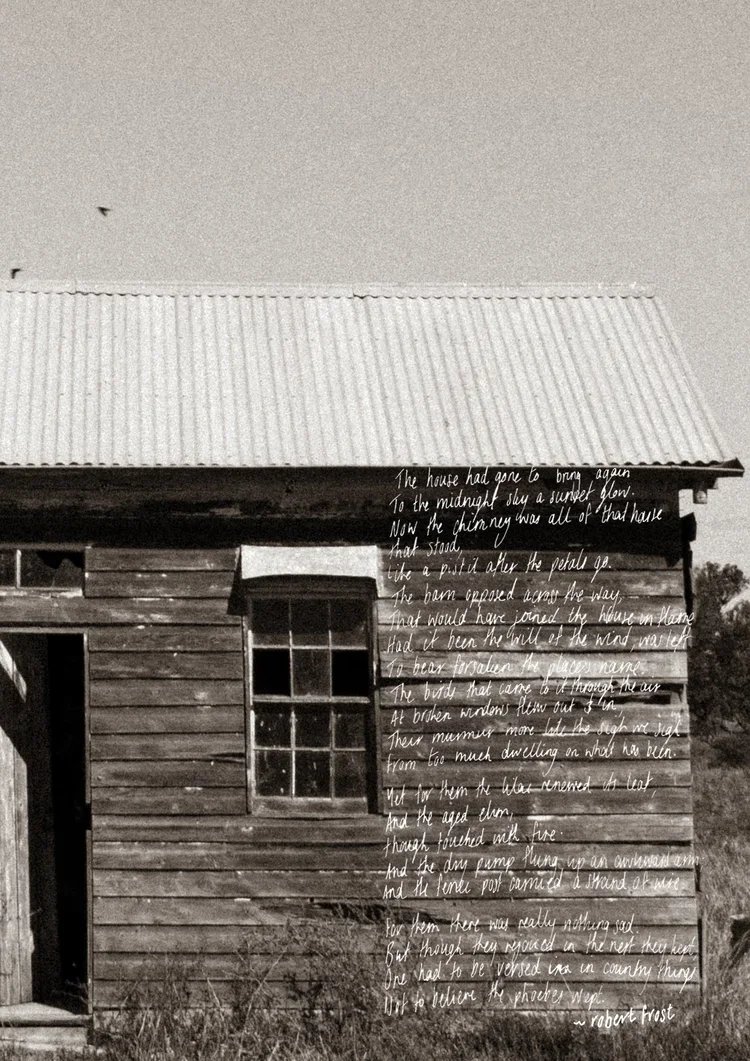 The house had gone to bring again
To the midnight sky a sunset glow.
Now the chimney was all of that house
that stood,
Like a pistil after the petals go.
The barn opposed across the way,
That would have joined the house in flame
Had it been the will of the wind, was left
To bear forsaken the place's name.
The birds that came to it through the air
At broken windows flew out & in
Their murmur more like the sigh we sigh
From too much dwelling on what has been.
Yet for them the lilac renewed its leaf
And the aged elm,
though touched with fire.
And the dry pump flung up an awkward arm
And the fence post carried a strand of wire.
For them there was really nothing sad.
But though they rejoiced in the nest they kept
One had to be versed in country things
Not to believe the phoebes wept.
~ robert frost